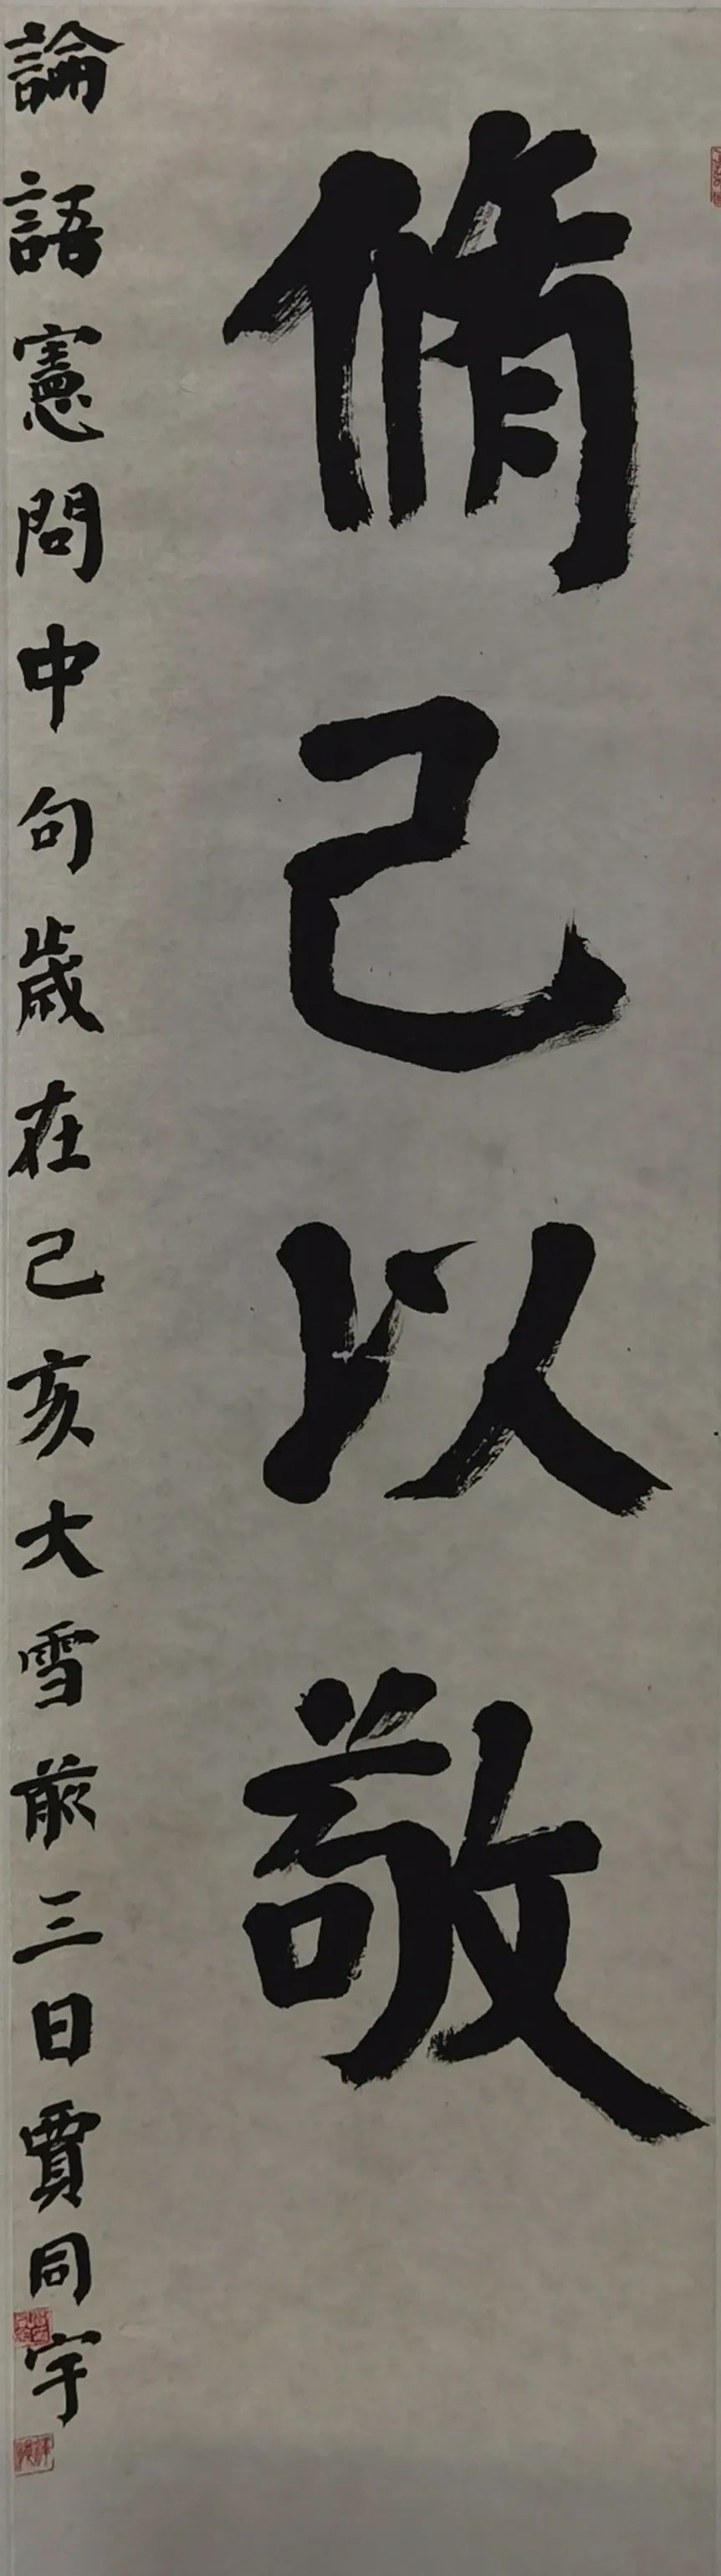 脩己以敬
論語憲問中句歲在己亥大雪前三日賈同宇